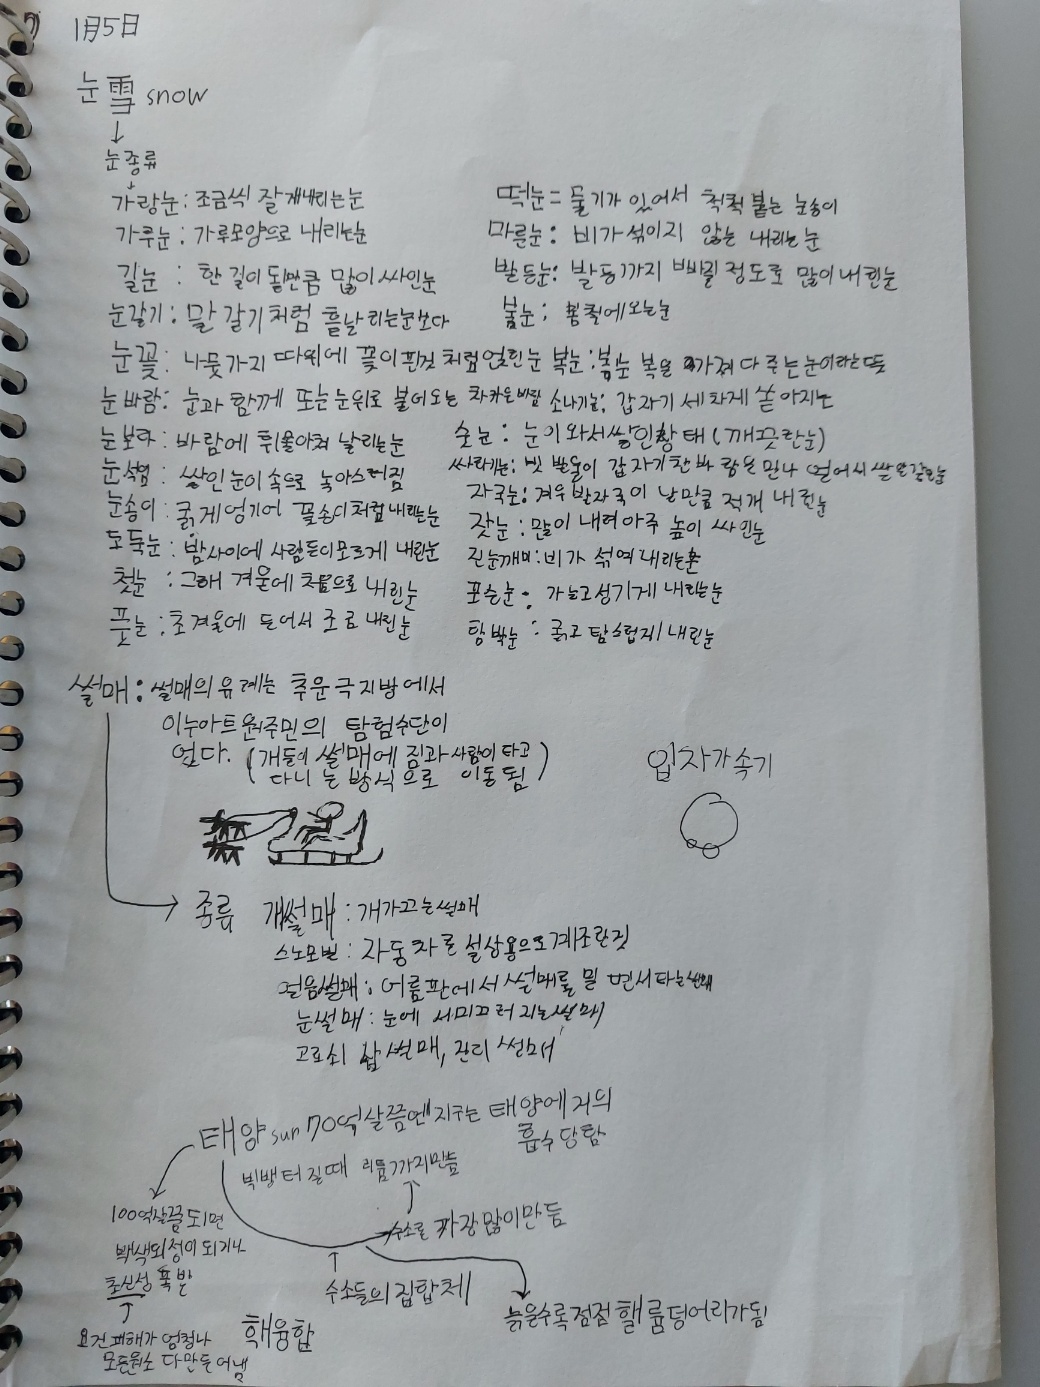 1月5日
눈 雪 snow
눈 종류
가랑눈 : 조금씩 잘게 내리는 눈
가루눈 : 가루모양으로 내리는 눈
길눈 : 한 길이 될만큼 많이 싸인눈
눈갈기 : 말 갈기처럼 흩날리는 눈보다
눈꽃 : 나뭇가지 따위에 꽃이 핀것 처럼 얹힌 눈
눈바람 : 눈과 함께 또는 눈위로 불어오는 차카운 바람
눈보라 : 바람에 휘몰아쳐 날리는 눈
눈석임 : 쌓인 눈이 속으로 녹아스러짐
눈송이 : 굵게 엉기어 꽃송이처럼 내리는 눈
도둑눈 : 밤사이에 사람들이 모르게 내린눈
첫눈 : 그해 겨울에 처음으로 내린눈
풋눈 : 초겨울에 들어서 조금 내린눈
떡눈 = 물기가 있어서 척척 붙는 눈송이
마른눈 : 비가 섞이지 않는 내리는 눈
발등눈 : 발등까지 빠질 정도로 많이 내린눈
봄눈 : 봄철에 오는눈
복눈 : 봄눈 복을 가져다 주는 눈이라는 뜻
소나기눈 : 갑자기 세차게 쏟아지는
숫눈 : 눈이 와서 쌓인황태 (깨끗한눈)
싸라기눈 : 빗방울이 갑자기 찬바람은 만나 얼어서 쌀알같은눈
자국눈 : 겨우 발자국이 날만큼 적개 내린눈
잣눈 : 많이 내려 아주 높이 싸인눈
진눈깨비 : 비가 섞여 내리는눈
포슬눈 : 가늘고 성기게 내리는눈
함박눈 : 굵고 탐스럽게 내린눈
썰매 : 썰매의 유례는 추운 극지방에서
이누아트 원주민의 탐험수단이
었다. (개들의 썰매에 짐과 사람이 타고
다니는 방식으로 이동됨)
입자가속기
종류 개썰매 : 개가끄는썰매
스노모빌 : 자동차를 설상용으로 게조한것
얼음썰매 : 어름판에서 썰매를 밀면서 타는썰매
눈썰매 : 눈에서 미끄러지는썰매
고로쇠 썰매,
태양 sun 70억살쯤엔 지구는 태양에 거의
흡수당함
빅뱅 터질때 리튬까지만듬
100억살쯤 되면
백색외성이 되거나
초신성 폭발
요건 피해가 엄청나
모든원소 다 만들어냄
수소를 가장 많이만듬
수소들의 집합체
핵융합
늙을수록 점점 헬륨덩어리가됨